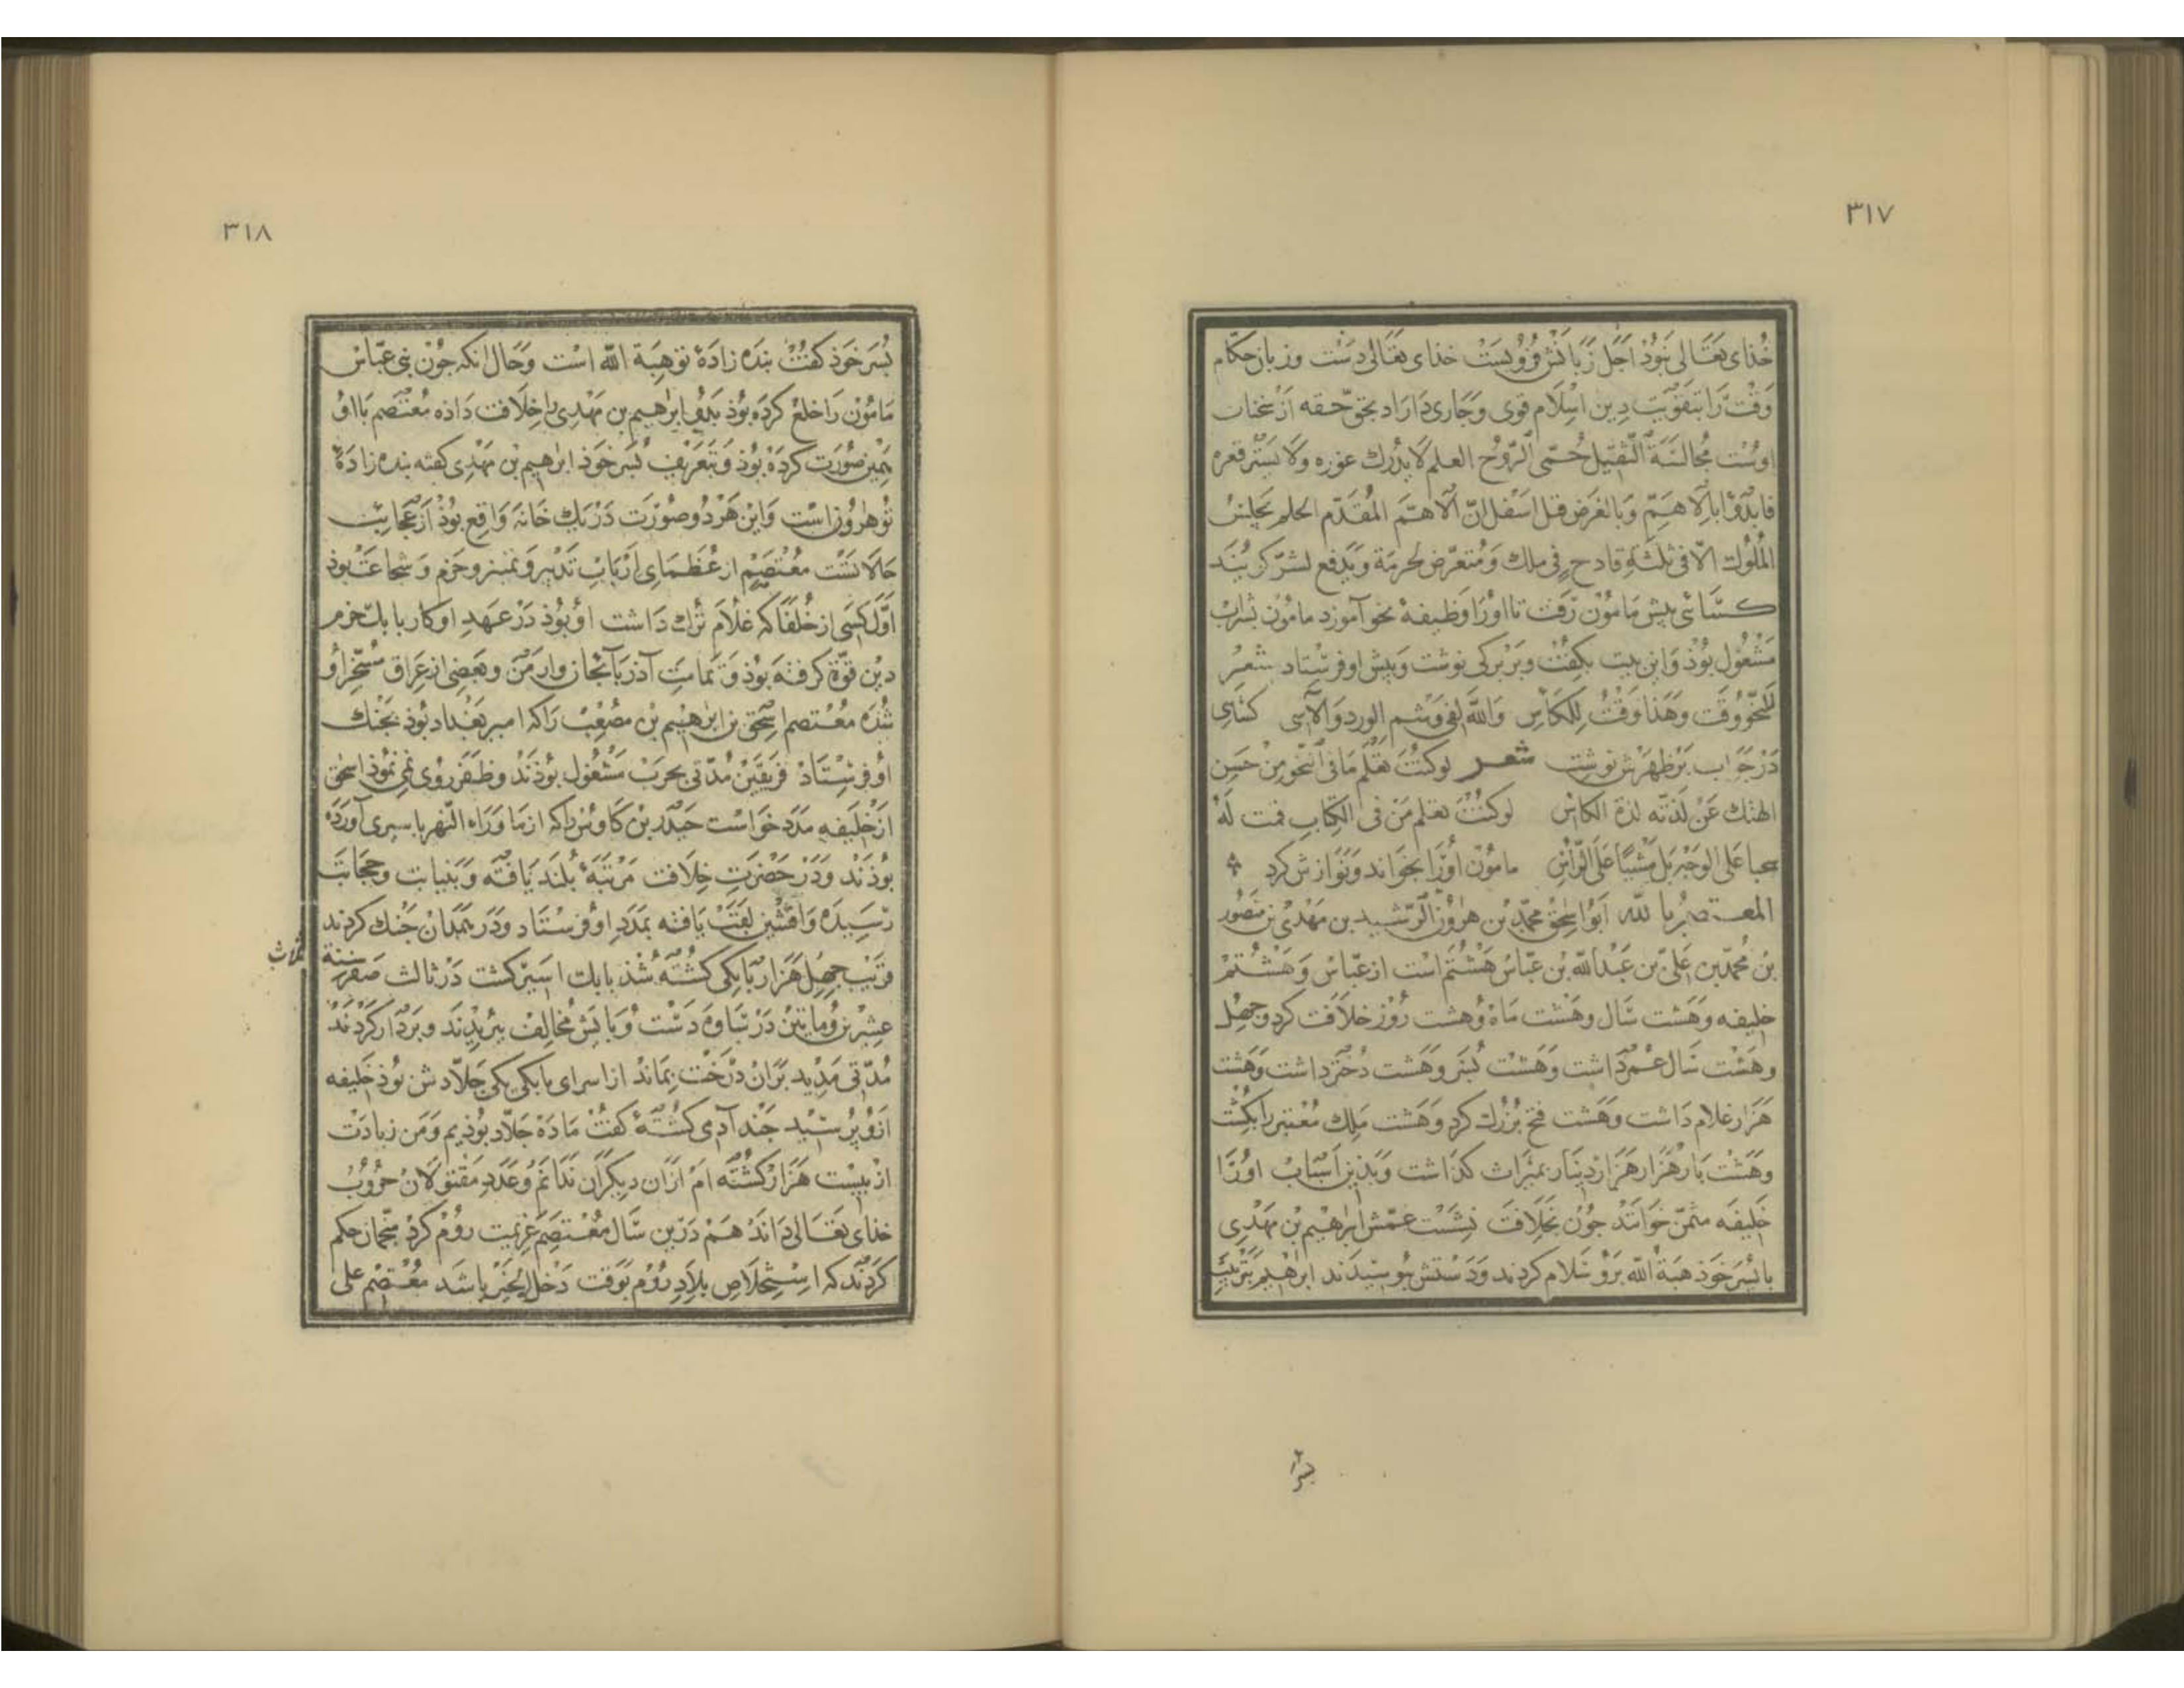 ٣١٧
خذای تعالی بنوذ اجل زبانش فرو بست خذای تعالی دست و زبان حکام
وقت را بتقویت دین اسلام قوی و جاری داراد بحق حقه از سخنان
اوست مجالسة الثقیل حمی الروح العلم لا یدرك غوره ولا یستر قعره
فابدؤا بالاهم وبالغرض قبل اسفل ان الاهم المقدم الحلم یحلس
الملوك الا فی ثلثة قادح فی ملك ومتعرض لحرمة و
کسائی پیش مامون رفت تا اورا وظیفهٔ نحو آموزد مامون بشراب
مشغول بوذ و این بیت بکفت و بر برکی نوشت و پیش او فرستاد شعر
للنحو وقت وهذا وقت للكاس والله لفی وشم الورد والآسی کسایی
در جواب بر ظهرش نوشت شعر لو کنت تعلم ما فی النحو من حسن
الهتك عن لذته لذة الکاس لو کنت تعلم من فی الکتاب قمت له
سحبا علی الوجه بل مشیا علی الرأس مامون اورا بخواند و نوازش کرد
المعتصم بالله ابو اسحق محمد بن هرون الرشید بن مهدی بن منصور
بن محمد بن علی بن عبد الله بن عباس هشتم است از عباس و هشتم
خلیفه و هشت سال و هشت ماه و هشت روز خلافت کرد و جهل
و هشت سال عمر داشت و هشت بسر و هشت دختر داشت و هشت
هزار غلام داشت و هشت فتح بزرك کرد و هشت ملك معتبر را بکشت
و هشت بار هزار هزار دینار بمیراث کذاشت و بذین اسباب اورا
خلیفه مثمن خوانند جون بخلافت نشست عمش ابرهیم بن مهدی
با بسر خوذ هبة الله برو سلام کردند و دستش بوسیدند ابرهیم بتربیت
بسر
٣١٨
بسر خوذ کفت بنده زادهٔ تو هبة الله است و حال آنکه جون بنی عباس
مامون را خلع کرده بوذ ابرهیم بن مهدی را خلافت داذه معتصم با او
همین صورت کرده بوذ و بتعریف بسر خوذ ابرهیم بن مهدی کفته بنده زادهٔ
تو هرون است و این هر دو صورت در یك خانه واقع بوذ از عجایب
حالاتست معتصم از عظمای ارباب تدبیر و تمییز و حزم و شجاعت بوذ
اول کسی از خلفا که غلام ترك داشت او بوذ در عهد او کار بابك خرم
دین قوة کرفته بوذ و تمامت آذربایجان و ارمن و بعضی از عراق مسخر او
شده معتصم اسحق بن ابرهیم بن مصعب را که امیر بغداد بوذ بجنك
او فرستاد فریقین مدتی بحرب مشغول بوذند و ظفر روی نمی نموذ اسحق
از خلیفه مدد خواست حیدر بن کاوس را که از ماوراء النهر باسیری آورده
بوذند و در حضرت خلافت مرتبهٔ بلند یافته و بنیابت و حجابت
رسیده و افشین لقب یافته بمدد او فرستاد و در همدان جنك کردند
قریب جهل هزار بابکی کشته شذ بابك اسیر کشت در ثالث صفر سنة ثلاث
عشرین و مایتین در سامره دست و پایش مخالف ببریدند و بر دار کردند
مدتی مدید بران درخت بماند از اسرای بابکی یکی جلادش بوذ خلیفه
ازو پرسید جند آدمی کشتهٔ کفت ما ده جلاد بوذیم و من زیادت
از بیست هزار کشته ام از آن دیکران ندانم و عدد مقتولان حروب
خذای تعالی داند هم درین سال معتصم عزیمت روم کرد منجمان حکم
کردند که استخلاص بلاد روم بوقت دخل انجیر باشد معتصم علی